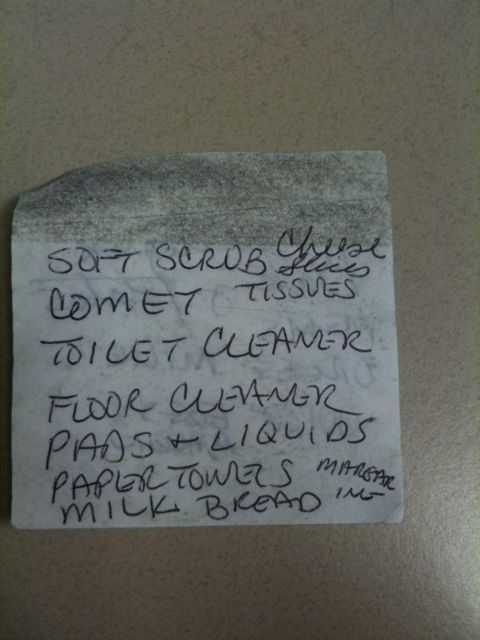 SOFT SCRUB Cheese
Slices
COMET TISSUES
TOILET CLEANER
FLOOR CLEANER
PADS + LIQUIDS
PAPER TOWELS MARGAR
MILK BREAD INE